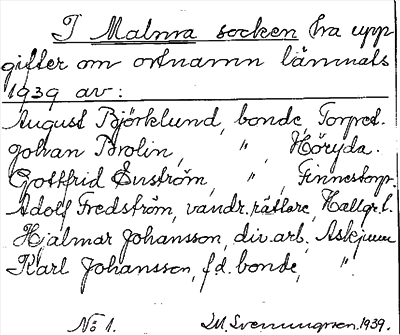 I Malma socken ha upp
gifter om ortnamn lämnats
1939 av:
August Björklund, bonde, Torpet.
Johan Brolin, " , Höryda.
Gottfrid Enström, " , Finnestorp.
Adolf Fredström, vandr. rättare, Hallgr. b.
Hjalmar Johansson, div. arb., Askjum
Karl Johansson, f.d. bonde, " .
No 1. M. Svenungsson. 1939.